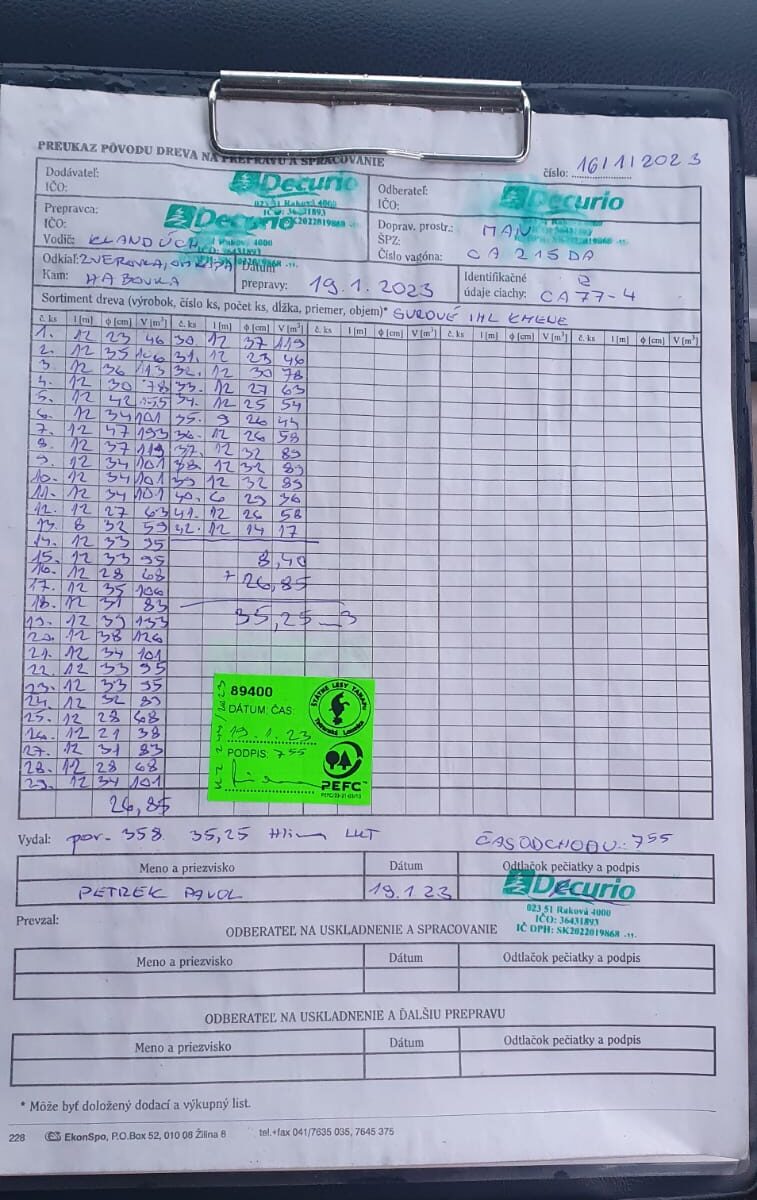 PREUKAZ PÔVODU DREVA NA PREPRAVU A SPRACOVANIE
číslo: 16/1/2023
Dodávateľ:
IČO:
Decurio
023 51 Raková 4000
IČO: 36431893
Odberateľ:
IČO:
Decurio
Prepravca:
IČO:
Decurio
Vodič: KLANDÚCH
Doprav. prostr.: MAN
ŠPZ:
Číslo vagóna: CA 215 DA
Odkiaľ: ZVEROVKA,
Kam: HABOVKA
Dátum
prepravy: 19.1.2023
Identifikačné
údaje ciachy: CA 77-4
Sortiment dreva (výrobok, číslo ks, počet ks, dĺžka, priemer, objem)* SUROVÉ IHL KMENE
č. ks l [m] φ [cm] V [m³] č. ks l [m] φ [cm] V [m³] č. ks l [m] φ [cm] V [m³] č. ks l [m] φ [cm] V [m³] č. ks l [m] φ [cm] V [m³]
1. 12 23 46 30 12 37 119
2. 12 35 106 31. 12 23 46
3. 12 36 113 32. 12 30 78
4. 12 30 78 33. 12 27 63
5. 12 42 155 34. 12 25 54
6. 12 34 101 35. 9 26
7. 12 47 193 36. 12 26 58
8. 12 37 119 37. 12 32 89
9. 12 34 101 38. 12 32 89
10. 12 34 101 39 12 32 89
11. 12 34 101 40. 6 29 36
12. 12 27 63 41. 12 26 58
13. 8 32 59 42. 12 14 17
14. 12 33 95
15. 12 33 95 8,40
16. 12 28 68 + 26,85
17. 12 35 106
18. 12 31 83 35,25
19. 12 39 133
20. 12 38 126
21. 12 34 101
22. 12 33 95
23. 12 33 95
24. 12 32 89
25. 12 28 68
26. 12 21 38
27. 12 31 83
28. 12 28 68
29. 12 34 101
26,85
89400
ŠTÁTNE LESY TANAPU
Tatranská Lomnica
DÁTUM, ČAS:
19.1.23
PODPIS: 7 55
PEFC™
Vydal: por. 358 35,25
ČAS ODCHODU: 7 55
Meno a priezvisko Dátum Odtlačok pečiatky a podpis
PETREK PAVOL 19.1.23
Decurio
023 51 Raková 4000
IČO: 36431893
IČ DPH: SK2022019868 -11-
Prevzal:
ODBERATEĽ NA USKLADNENIE A SPRACOVANIE
Meno a priezvisko Dátum Odtlačok pečiatky a podpis
ODBERATEĽ NA USKLADNENIE A ĎALŠIU PREPRAVU
Meno a priezvisko Dátum Odtlačok pečiatky a podpis
* Môže byť doložený dodací a výkupný list.
228 EkonSpo, P.O.Box 52, 010 08 Žilina 8 tel.+fax 041/7635 035, 7645 375